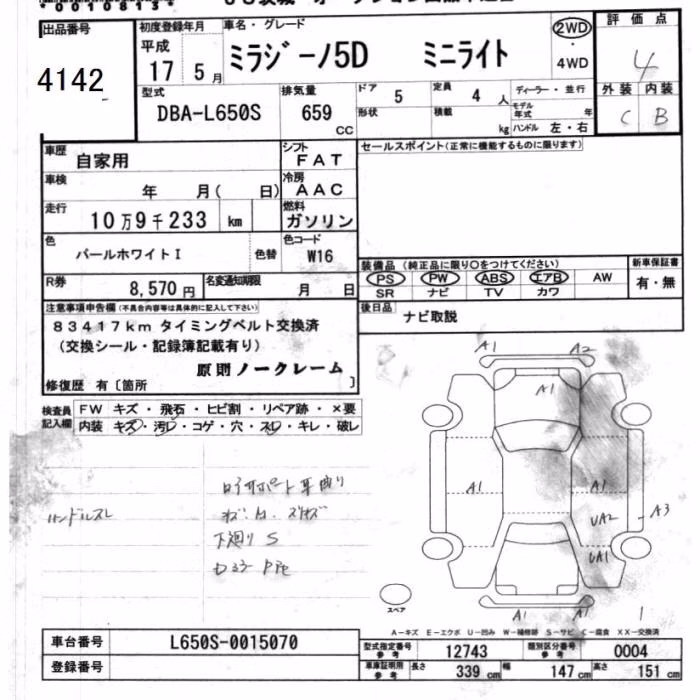 1001081134
出品番号
4142
初度登録年月
平成
17 5月
車名・グレード
ミラジーノ5D ミニライト
2WD
・
4WD
評価点
4
外装 内装
C B
型式
DBA-L650S
排気量
659
CC
ドア 5
定員 4人
ディーラー・並行
形状
積載 kg
モデル年式 年
ハンドル 左・右
車歴
自家用
シフト
FAT
セールスポイント(正常に機能するものに限ります)
車検
年 月( 日)
冷房
AAC
走行
10万9千233 km
燃料
ガソリン
色
パールホワイトI
色替
色コード
W16
装備品 (純正品に限り○をつけてください)
PS PW ABS エアB AW
SR ナビ TV カワ
新車保証書
有・無
R券
8,570円
名変通知期限
月 日
後日品
ナビ取説
注意事項申告欄(不具合内容等は具体的に記入して下さい)
83417km タイミングベルト交換済
(交換シール・記録簿記載有り)
原則ノークレーム
修復歴 有〔箇所 〕
検査員
記入欄
FW キズ・飛石・ヒビ割・リペア跡・×要
内装 キズ・汚レ・コゲ・穴・スレ・キレ・破レ
ハンドルスレ
下廻り S
A1 A2
A1
A1 A1
A3
UA2
UA1
A1
スペア
A-キズ E-エクボ U-凹み W-補修跡 S-サビ C-腐食 XX-交換済
車台番号
L650S-0015070
登録番号
型式指定番号
参考
12743
類別区分番号
参考
0004
車庫証明用
参考
長さ 339 cm
幅 147 cm
高さ 151 cm